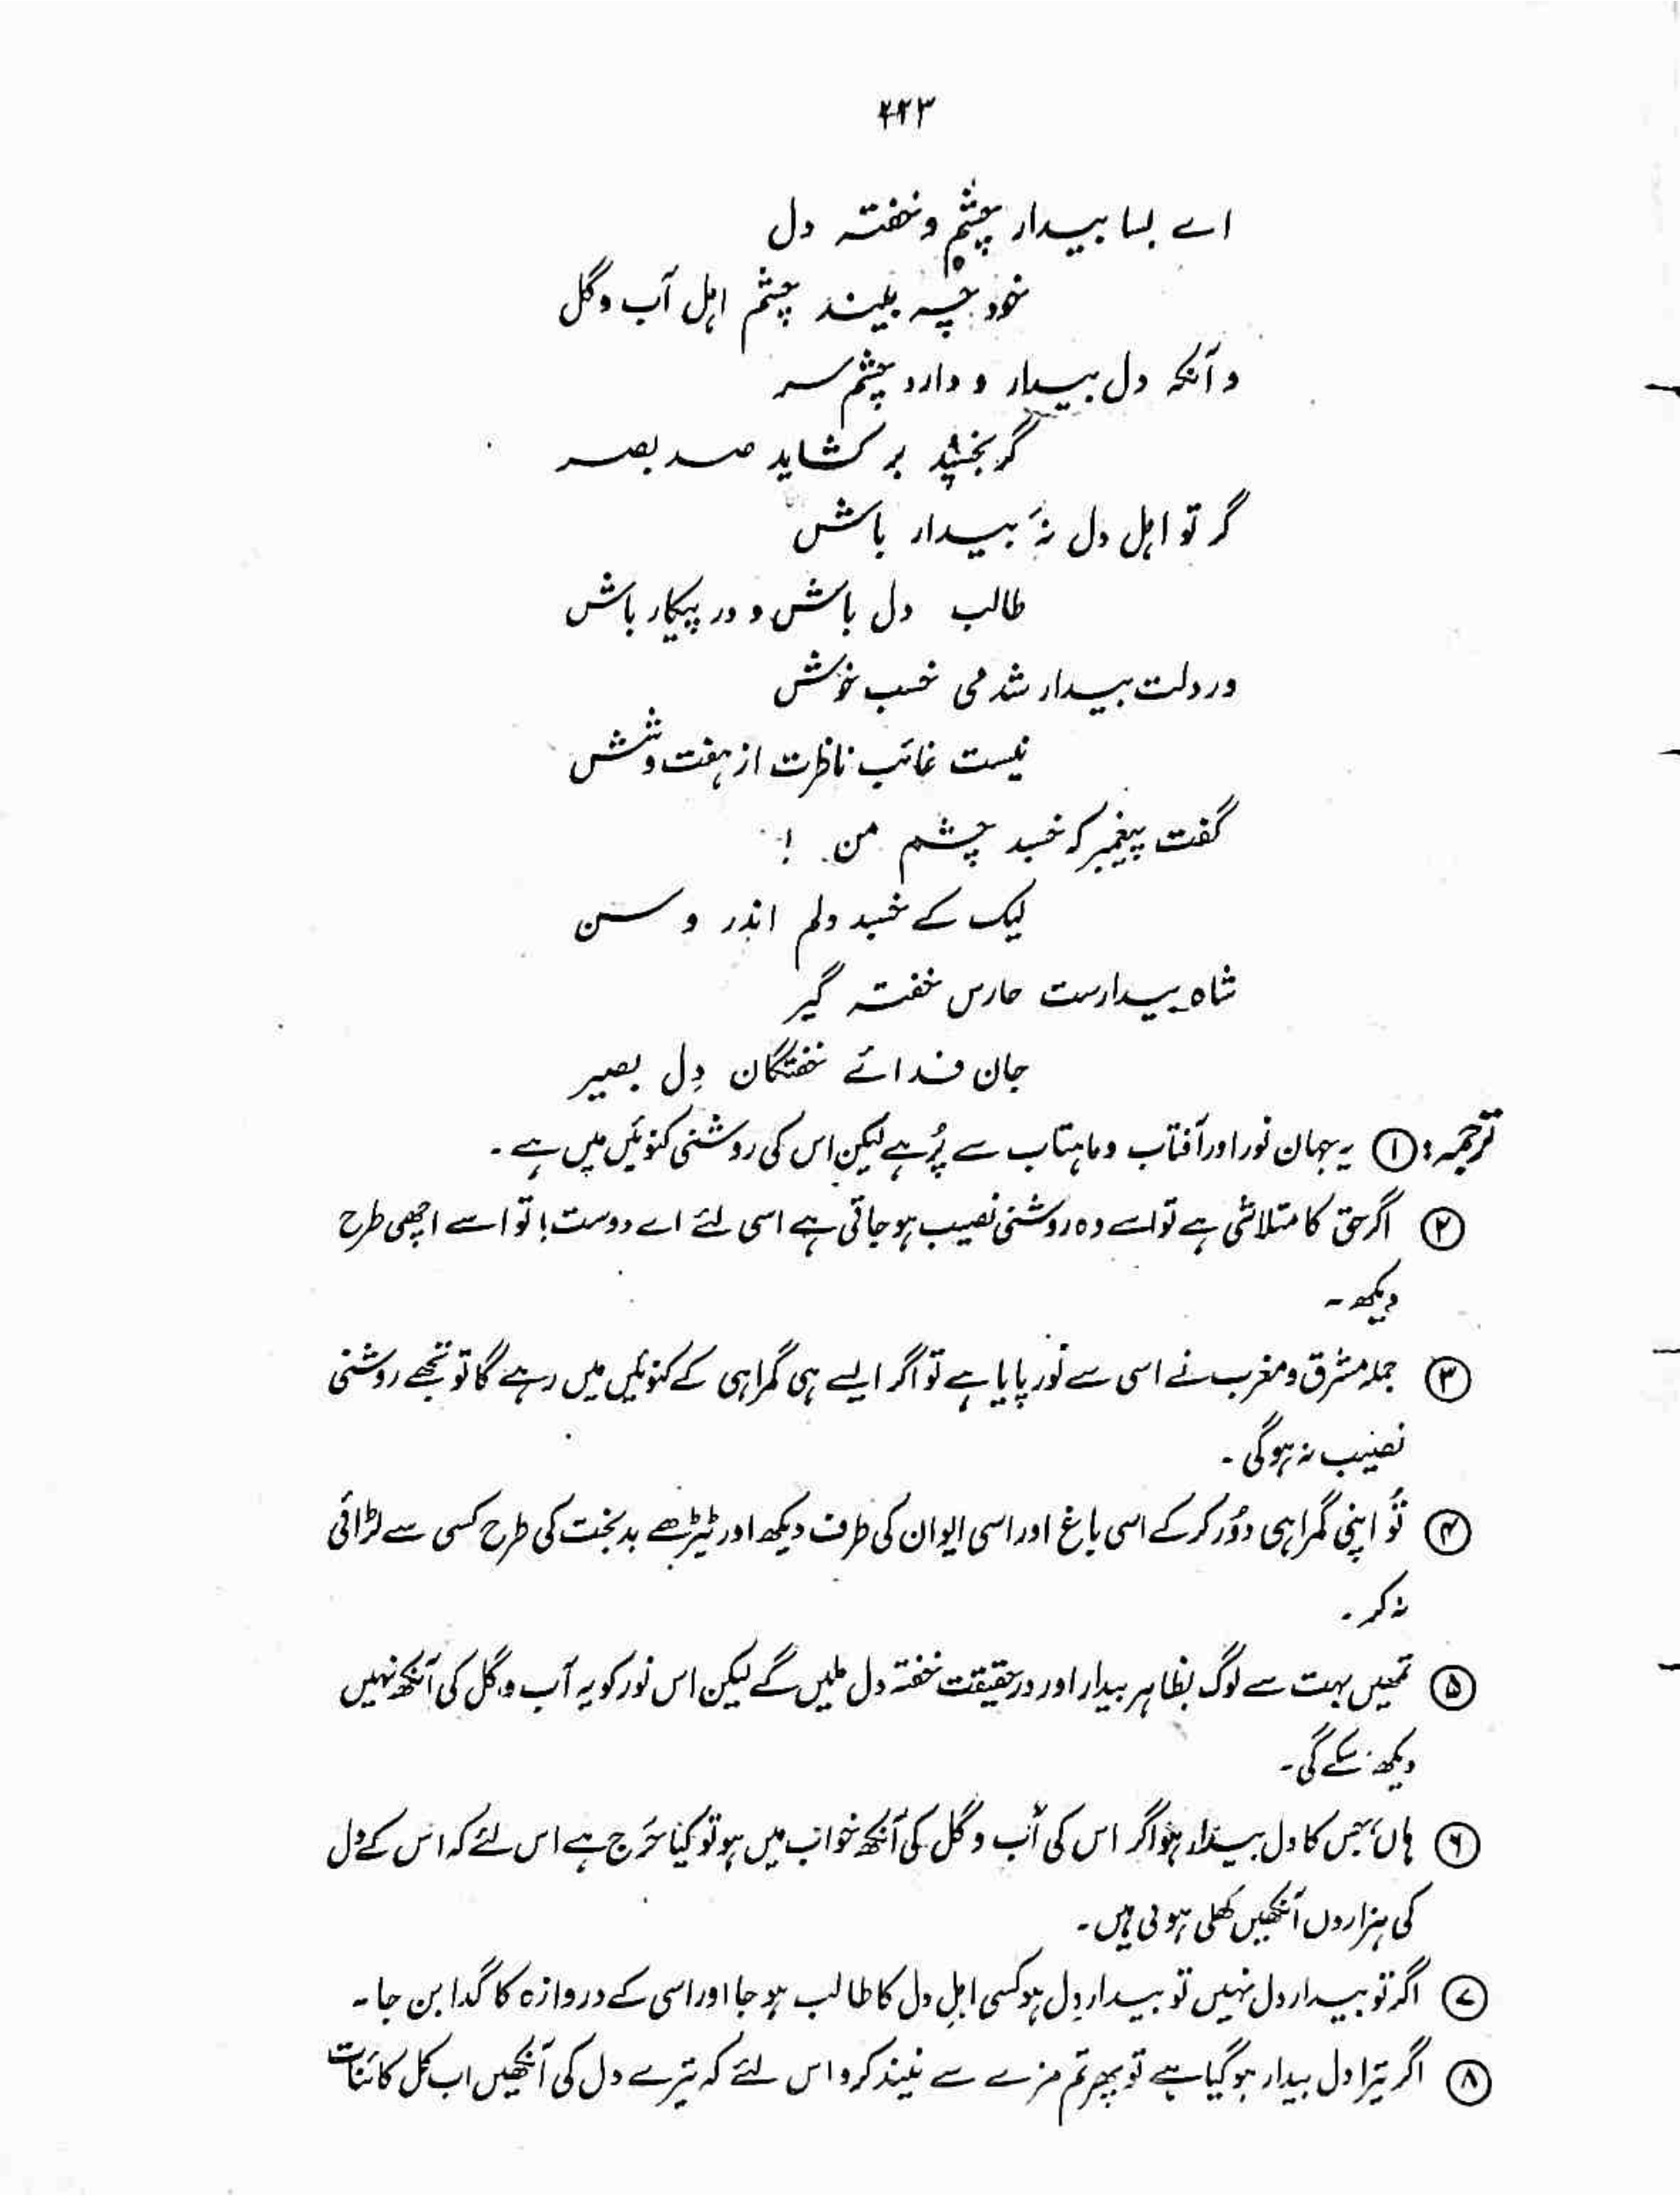 ۲۲۳
اے بسا بیدار چشم و خفتہ دل
خود چہ بیند چشم اہل آب و گل
و آنکہ دل بیدار و دارد چشم سر
گر بخسپد بر کشاید صد بصر
گر تو اہل دل نۂ بیدار باش
طالب دل باش و در پیکار باش
ور دلت بیدار شد می خسب خوش
نیست غائب ناظرت از ہفت و شش
گفت پیغمبر کہ خسبد چشم من !
لیک کے خسبد دلم اندر وسن
شاہ بیدارست حارس خفتہ گیر
جان فدائے خفتگان دِل بصیر
ترجمہ: ① یہ جہان نور اور آفتاب و ماہتاب سے پُر ہے لیکن اس کی روشنی کنوئیں میں ہے ۔
② اگر حق کا متلاشی ہے تو اسے وہ روشنی نصیب ہو جاتی ہے اسی لئے اے دوست! تو اسے اچھی طرح
دیکھ ۔
③ جملہ مشرق و مغرب نے اسی سے نور پایا ہے تو اگر ایسے ہی گمراہی کے کنوئیں میں رہے گا تو تجھے روشنی
نصیب نہ ہوگی ۔
④ تُو اپنی گمراہی دُور کر کے اسی باغ اور اسی ایوان کی طرف دیکھ اور ٹیڑھے بدبخت کی طرح کسی سے لڑائی
نہ کر ۔
⑤ تمھیں بہت سے لوگ بظاہر بیدار اور درحقیقت خفتہ دل ملیں گے لیکن اس نور کو یہ آب و گل کی آنکھ نہیں
دیکھ سکے گی ۔
⑥ ہاں جس کا دل بیدار ہو اگر اس کی آب و گل کی آنکھ خواب میں ہو تو کیا حَرج ہے اس لئے کہ اس کے دل
کی ہزاروں آنکھیں کھلی ہوئی ہیں ۔
⑦ اگر تو بیدار دل نہیں تو بیدار دِل ہو کسی اہلِ دل کا طالب ہو جا اور اسی کے دروازہ کا گدا بن جا ۔
⑧ اگر تیرا دل بیدار ہو گیا ہے تو پھر تم مزے سے نیند کرو اس لئے کہ تیرے دل کی آنکھیں اب کل کائنات